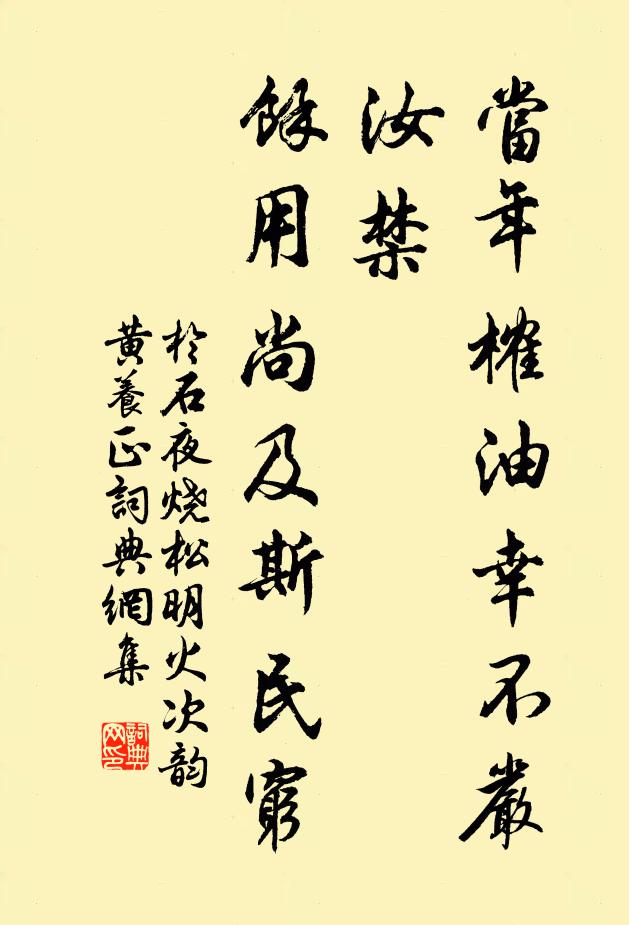 當年榷油幸不嚴
汝禁
餘用尚及斯民窮
於石夜烧松明火次韵
黄養正詞典網集
詞典网印